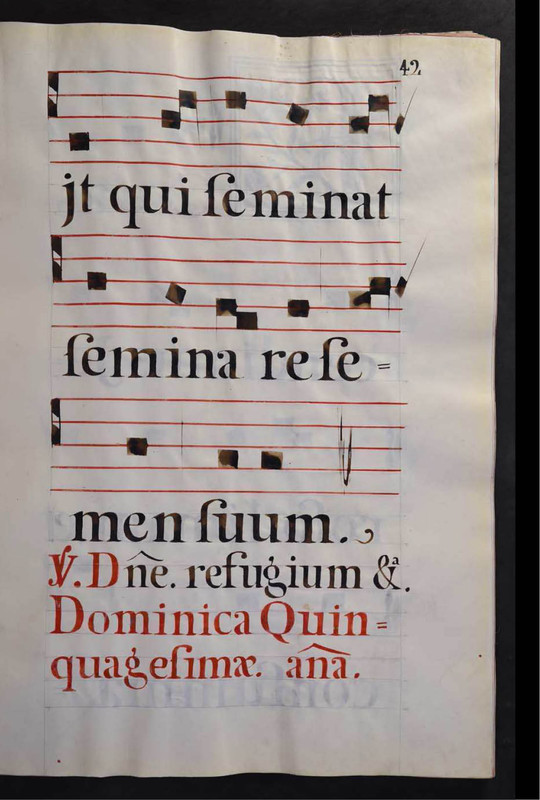 42
jt qui ſeminat
ſemina re ſe =
men ſuum.
℣. D n̂e. refugium &ª.
Dominica Quin=
quageſimæ. an̂a.